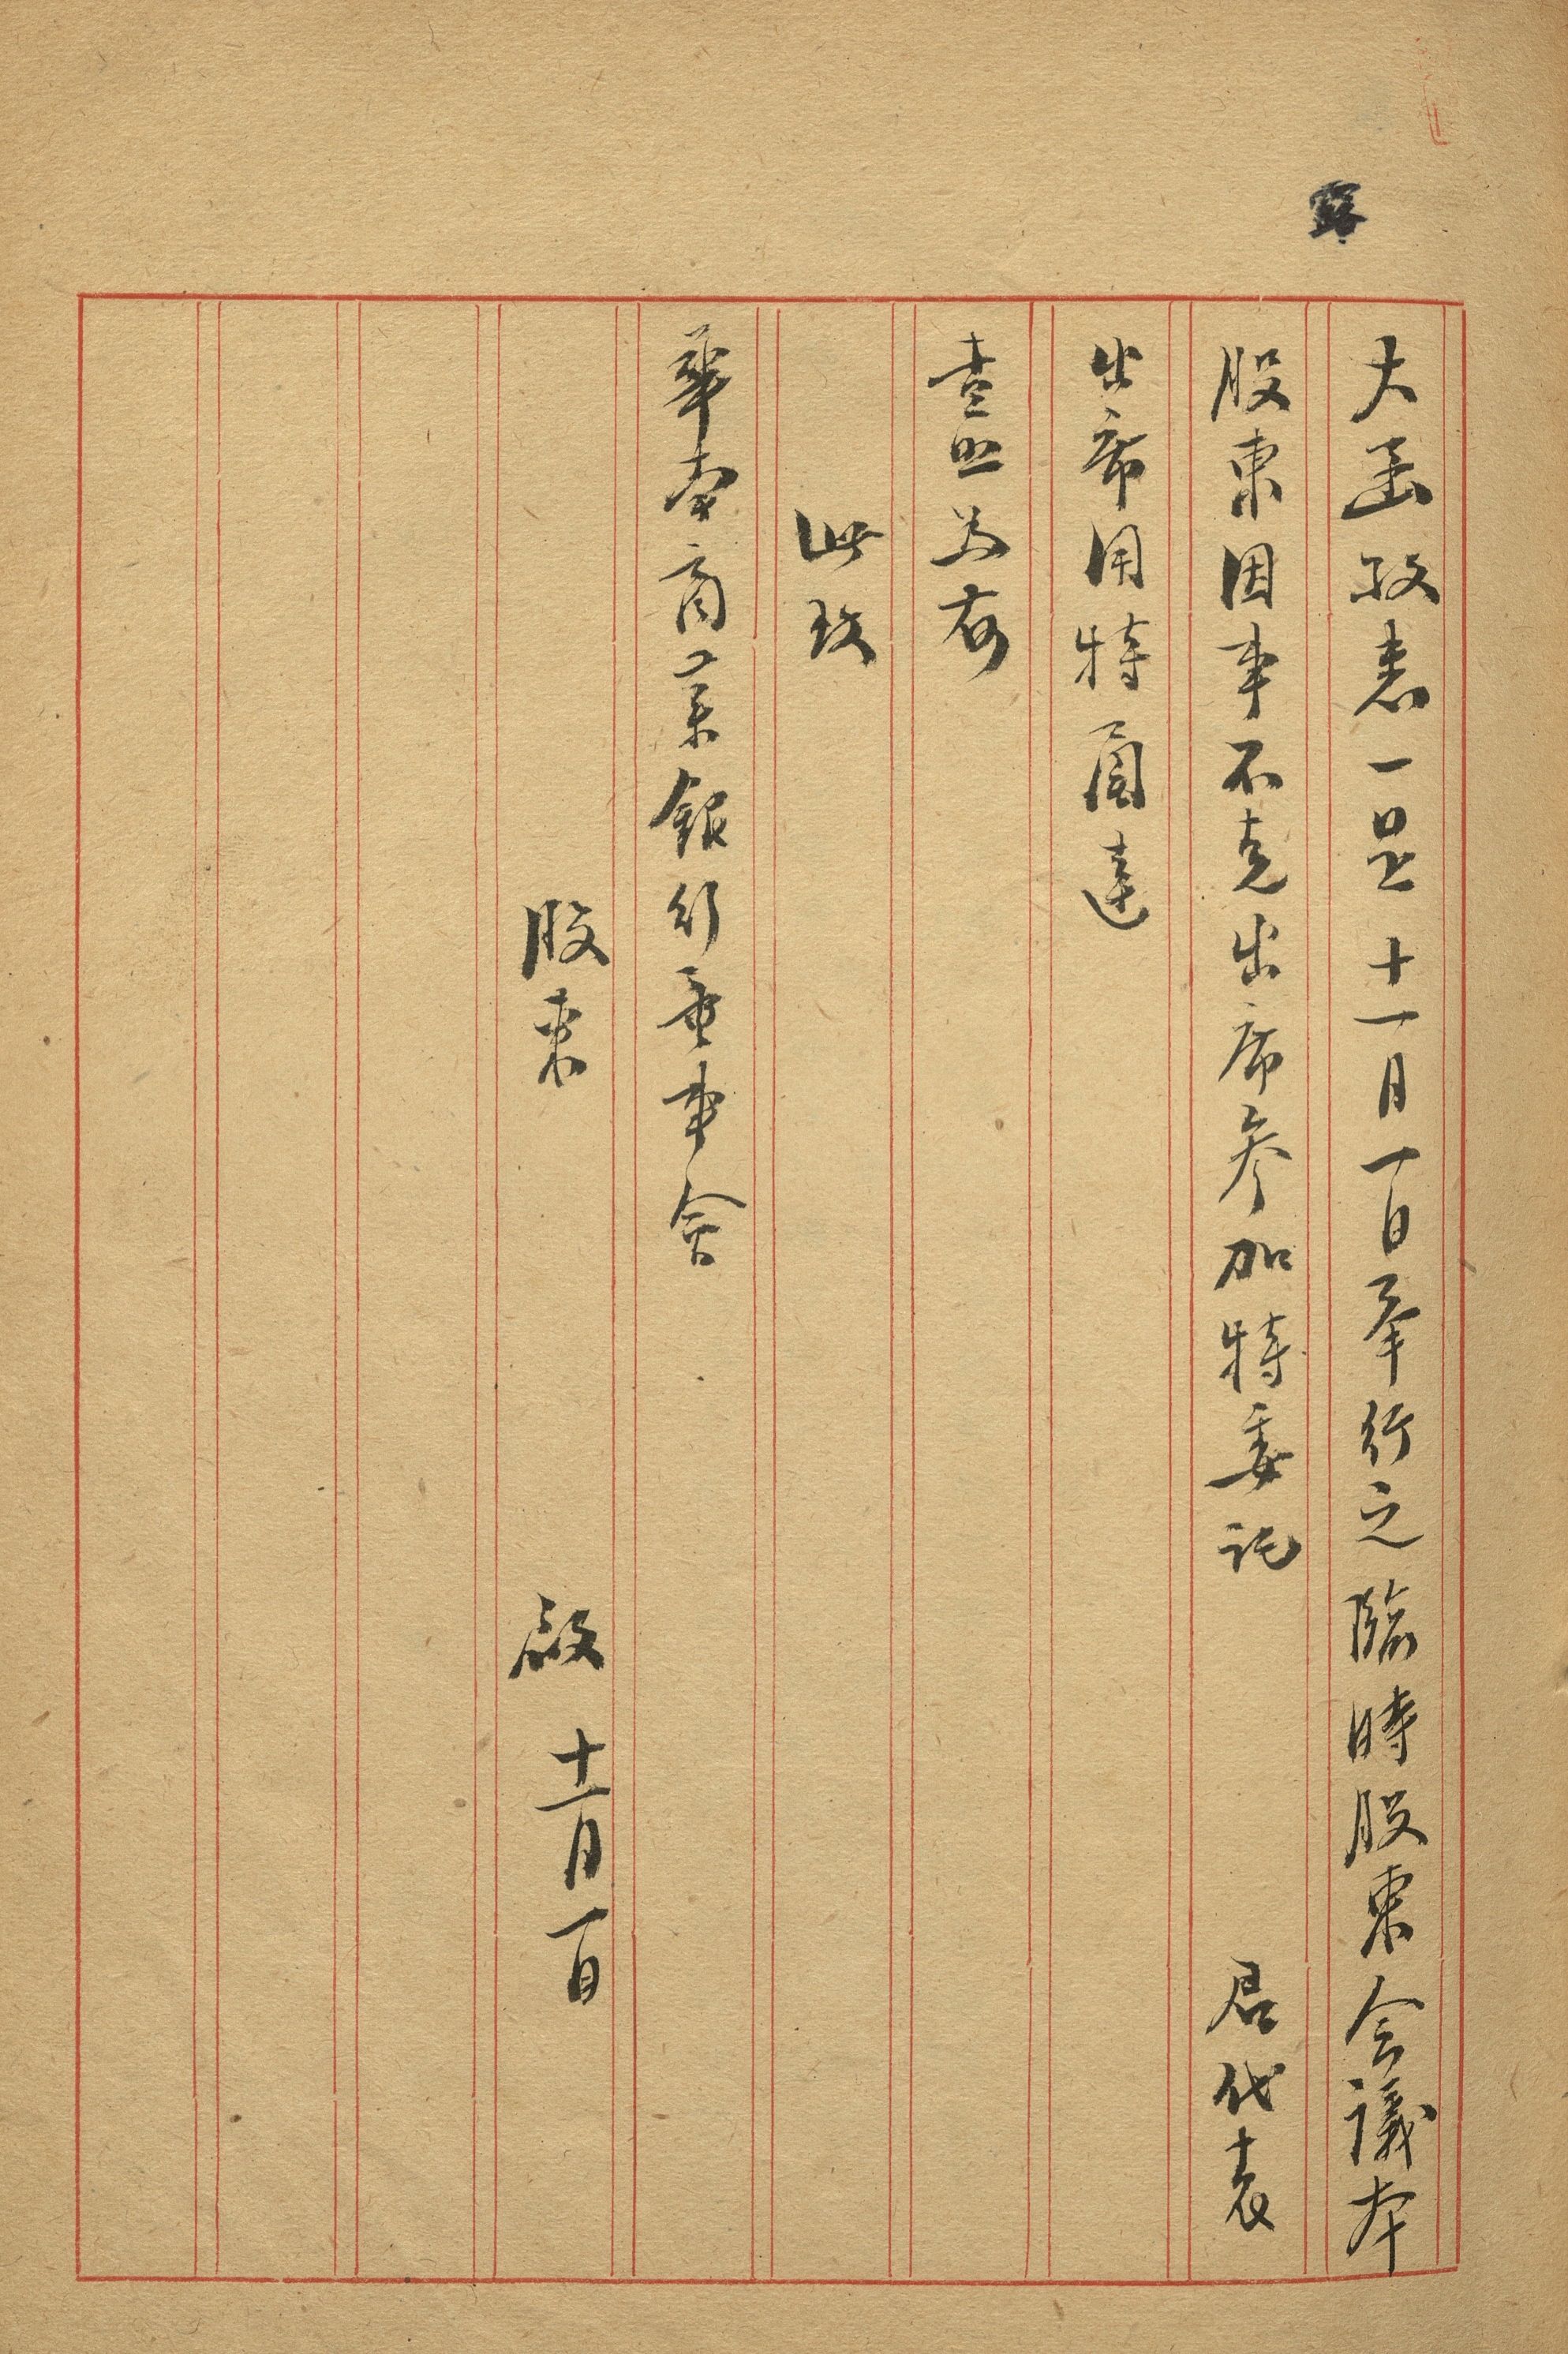 大函敬悉一是十一月一日舉行之臨時股東会議本
股東因事不克出席參加特委託　君代表
出席用特函達
查照為荷
此致
華南商業銀行董事會
股東　啟　十一月一日